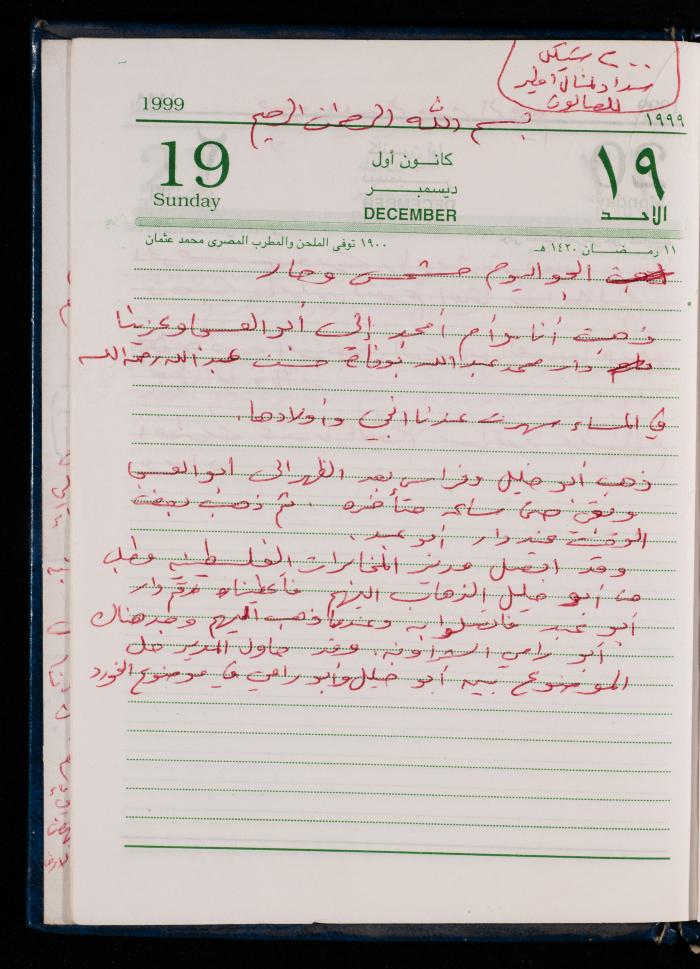 ٢٠٠٠ شيكل
سداد
للصالون
1999
١٩٩٩
بسم الله الرحمن الرحيم
19
كانون أول
١٩
Sunday
ديسمبر
الأحد
DECEMBER
١١ رمضان ١٤٢٠ هـ
١٩٠٠ توفى الملحن والمطرب المصرى محمد عثمان
الجو اليوم مشمس وحار
ذهبت أنا وأم أمجد إلى أبو العسس وعزينا
دار محمد عبد الله بوفاة حسن عبد الله رحمه الله
في المساء سهرت عندنا انجي وأولادها.
ذهب أبو خليل وفراس بعد الظهر الى أبو العسس
وبقي حتى ساعة متأخرة . ثم ذهب لبعض
الوقت عند دار أبو عبد.
وقد اتصل مدير المخابرات الفلسطينية وطلب
من أبو خليل الذهاب اليهم فأعطيناه رقم دار
أبو عبد فاتصلوا به وعندما ذهب اليهم وجد هناك
أبو رامي . وقد حاول المدير حل
الموضوع بين أبو خليل وأبو رامي في موضوع الفورد